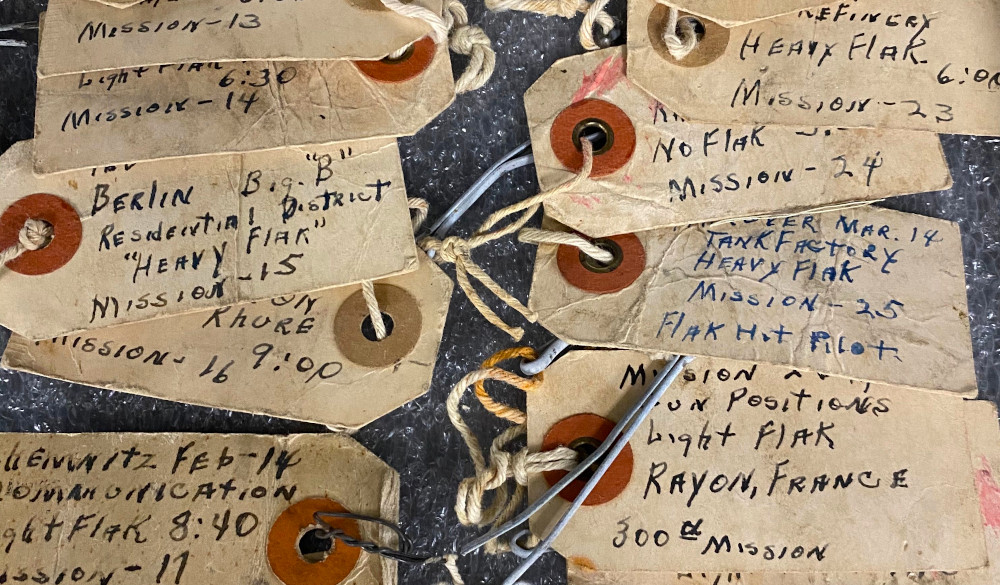 Mission-13
Light Flak
6:30
Mission-14
"B"
Berlin Big "B"
Residential District
"Heavy Flak"
Mission-15
Rhure
Mission-16 9:00
Feb-14
Flak 8:40
Mission-17
Refinery
Heavy Flak
6:00
Mission-23
No Flak
Mission-24
Mar. 14
Tank Factory
Heavy Flak
Mission-25
Flak Hit Pilot
Mission
Gun Positions
Light Flak
Rayon, France
300th Mission